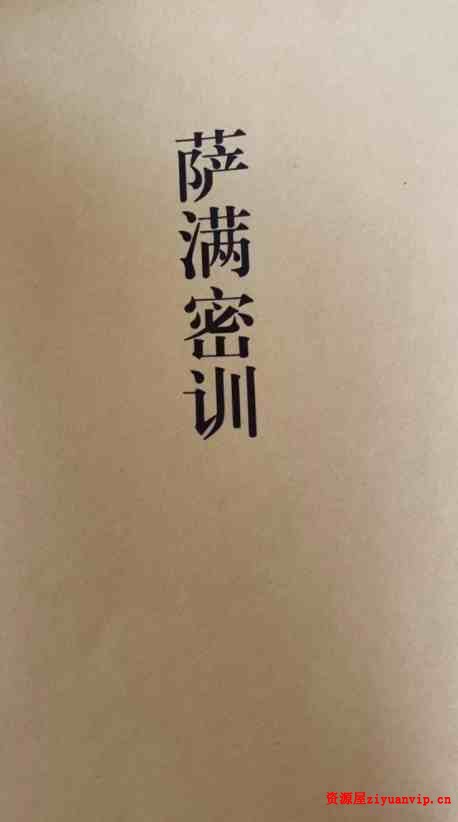 萨满密训
资源屋ziyuanvip.cn